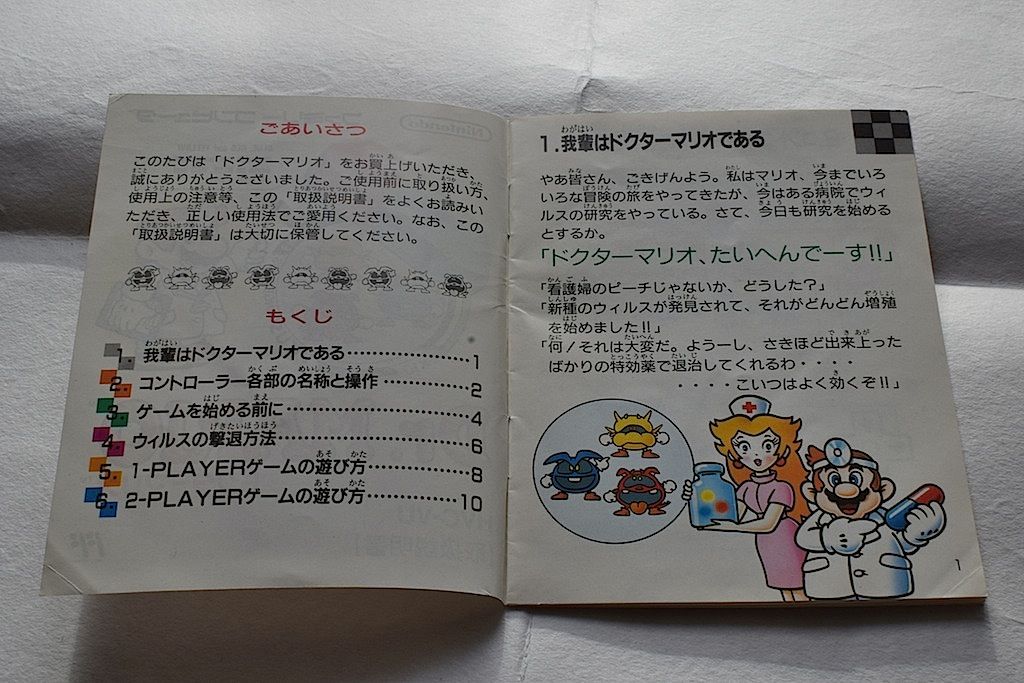 ごあいさつ
このたびは「ドクターマリオ」をお買上げいただき、
誠にありがとうございました。ご使用前に取り扱い方、
使用上の注意等、この「取扱説明書」をよくお読みい
ただき、正しい使用法でご愛用ください。なお、この
「取扱説明書」は大切に保管してください。
もくじ
1. 我輩はドクターマリオである……………………1
2. コントローラー各部の名称と操作……………2
3. ゲームを始める前に……………………………4
4. ウィルスの撃退方法……………………………6
5. 1-PLAYERゲームの遊び方……………………8
6. 2-PLAYERゲームの遊び方……………………10
1.我輩はドクターマリオである
やあ皆さん、ごきげんよう。私はマリオ、今までいろ
いろな冒険の旅をやってきたが、今はある病院でウィ
ルスの研究をやっている。さて、今日も研究を始める
とするか。
「ドクターマリオ、たいへんでーす!!」
「看護婦のピーチじゃないか、どうした?」
「新種のウィルスが発見されて、それがどんどん増殖
を始めました!!」
「何!それは大変だ。ようーし、さきほど出来上った
ばかりの特効薬で退治してくれるわ・・・・
・・・・こいつはよく効くぞ!!」
1